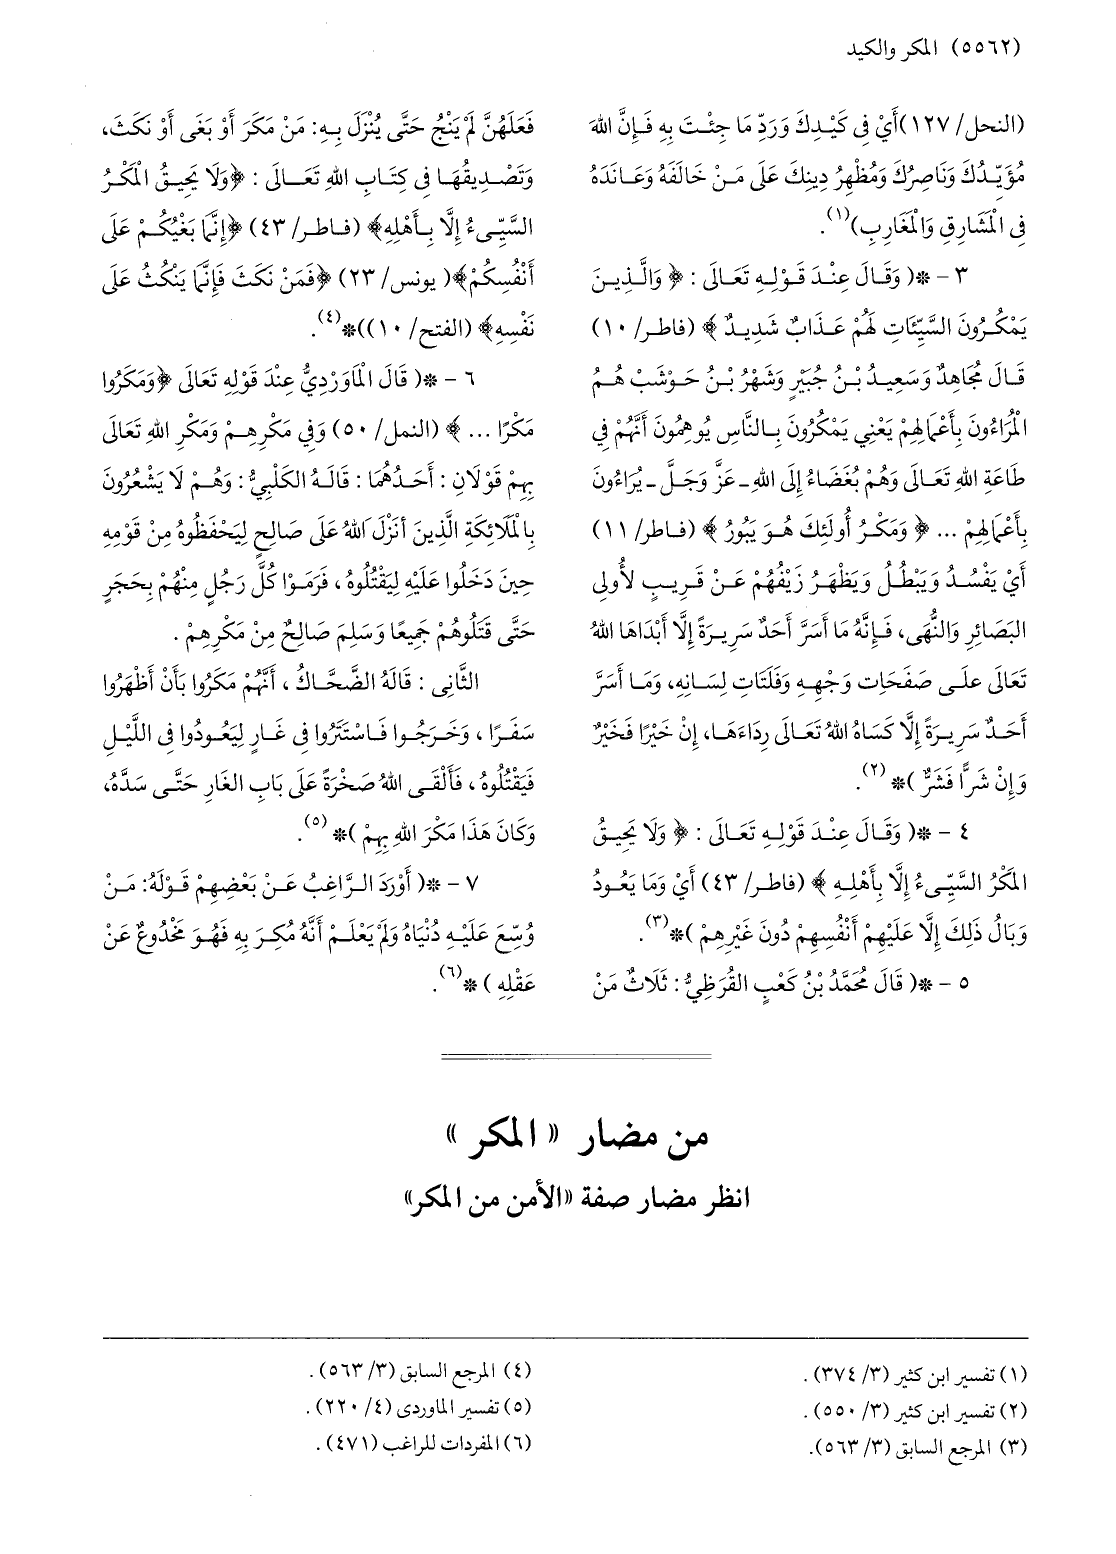 (٥٥٦٢) المكر والكيد
(النحل/ ١٢٧)أَيْ فِي كَيْدِكَ وَرَدِّ مَا جِئْتَ بِهِ فَإِنَّ اللهَ
مُؤَيِّدُكَ وَنَاصِرُكَ وَمُظْهِرُ دِينِكَ عَلَى مَنْ خَالَفَهُ وَعَانَدَهُ
فِي الْمَشَارِقِ وَالْمَغَارِبِ)(١).
٣ - *( وَقَالَ عِنْدَ قَوْلِهِ تَعَالَى : ﴿ وَالَّذِينَ
يَمْكُرُونَ السَّيِّئَاتِ لَهُمْ عَذَابٌ شَدِيدٌ ﴾ (فاطر/ ١٠)
قَالَ مُجَاهِدٌ وَسَعِيدُ بْنُ جُبَيْرٍ وَشَهْرُ بْنُ حَوْشَبْ هُمُ
الْمُرَاءُونَ بِأَعْمَالِهِمْ يَعْنِي يَمْكُرُونَ بِالنَّاسِ يُوهِمُونَ أَنَّهُمْ فِي
طَاعَةِ اللهِ تَعَالَى وَهُمْ بُغَضَاءُ إِلَى اللهِ ـ عَزَّ وَجَلَّ ـ يُرَاءُونَ
بِأَعْمَالِهِمْ ... ﴿ وَمَكْرُ أُولَئِكَ هُوَ يَبُورُ ﴾ (فاطر/ ١١)
أَيْ يَفْسُدُ وَيَبْطُلُ وَيَظْهَرُ زَيْفُهُمْ عَنْ قَرِيبٍ لأُولِي
البَصَائِرِ وَالنُّهَى، فَإِنَّهُ مَا أَسَرَّ أَحَدٌ سَرِيرَةً إِلَّا أَبْدَاهَا اللهُ
تَعَالَى عَلَى صَفَحَاتِ وَجْهِهِ وَفَلَتَاتِ لِسَانِهِ، وَمَا أَسَرَّ
أَحَدٌ سَرِيرَةً إِلَّا كَسَاهُ اللهُ تَعَالَى رِدَاءَهَا، إِنْ خَيْرًا فَخَيْرٌ
وَإِنْ شَرًّا فَشَرٌّ )* (٢).
٤ - *( وَقَالَ عِنْدَ قَوْلِهِ تَعَالَى : ﴿ وَلَا يَحِيقُ
الْمَكْرُ السَّيِّىءُ إِلَّا بِأَهْلِهِ ﴾ (فاطر/ ٤٣) أَيْ وَمَا يَعُودُ
وَبَالُ ذَلِكَ إِلَّا عَلَيْهِمْ أَنْفُسِهِمْ دُونَ غَيْرِهِمْ )*(٣).
٥ - *( قَالَ مُحَمَّدُ بْنُ كَعْبٍ القُرَظِيُّ : ثَلَاثٌ مَنْ
فَعَلَهُنَّ لَمْ يَنْجُ حَتَّى يُنْزَلَ بِهِ: مَنْ مَكَرَ أَوْ بَغَى أَوْ نَكَثَ،
وَتَصْدِيقُهَا فِي كِتَابِ اللهِ تَعَالَى : ﴿وَلَا يَحِيقُ الْمَكْرُ
السَّيِّىءُ إِلَّا بِأَهْلِهِ﴾ (فاطر/ ٤٣) ﴿إِنَّمَا بَغْيُكُمْ عَلَى
أَنْفُسِكُمْ﴾( يونس/ ٢٣) ﴿فَمَنْ نَكَثَ فَإِنَّمَا يَنْكُثُ عَلَى
نَفْسِهِ﴾ (الفتح/ ١٠))*(٤).
٦ - *( قَالَ الْمَاوَرْدِيُّ عِنْدَ قَوْلِهِ تَعَالَى ﴿وَمَكَرُوا
مَكْرًا ... ﴾ (النمل/ ٥٠) وَفِي مَكْرِهِمْ وَمَكْرِ اللهِ تَعَالَى
بِهِمْ قَوْلَانِ : أَحَدُهُمَا : قَالَهُ الكَلْبِيُّ : وَهُمْ لَا يَشْعُرُونَ
بِالْمَلَائِكَةِ الَّذِينَ أَنْزَلَ اللهُ عَلَى صَالِحٍ لِيَحْفَظُوهُ مِنْ قَوْمِهِ
حِينَ دَخَلُوا عَلَيْهِ لِيَقْتُلُوهُ ، فَرَمَوْا كُلَّ رَجُلٍ مِنْهُمْ بِحَجَرٍ
حَتَّى قَتَلُوهُمْ جَمِيعًا وَسَلِمَ صَالِحٌ مِنْ مَكْرِهِمْ .
الثَّانِى : قَالَهُ الضَّحَّاكُ ، أَنَّهُمْ مَكَرُوا بَأَنْ أَظْهَرُوا
سَفَرًا ، وَخَرَجُوا فَاسْتَتَرُوا فِى غَارٍ لِيَعُودُوا فِى اللَّيْلِ
فَيَقْتُلُوهُ ، فَأَلْقَى اللهُ صَخْرَةً عَلَى بَابِ الغَارِ حَتَّى سَدَّهُ،
وَكَانَ هَذَا مَكْرَ اللهِ بِهِمْ )* (٥).
٧ - *( أَوْرَدَ الرَّاغِبُ عَنْ بَعْضِهِمْ قَوْلَهُ: مَنْ
وُسِّعَ عَلَيْهِ دُنْيَاهُ وَلَمْ يَعْلَمْ أَنَّهُ مُكِرَ بِهِ فَهُوَ مَخْدُوعٌ عَنْ
عَقْلِهِ ) *(٦).
من مضار «المكر»
انظر مضار صفة «الأمن من المكر»
(١) تفسير ابن كثير (٣/ ٣٧٤) .
(٢) تفسير ابن كثير (٣/ ٥٥٠) .
(٣) المرجع السابق (٣/ ٥٦٣).
(٤) المرجع السابق (٣/ ٥٦٣) .
(٥) تفسير الماوردى (٤/ ٢٢٠) .
(٦) المفردات للراغب (٤٧١) .